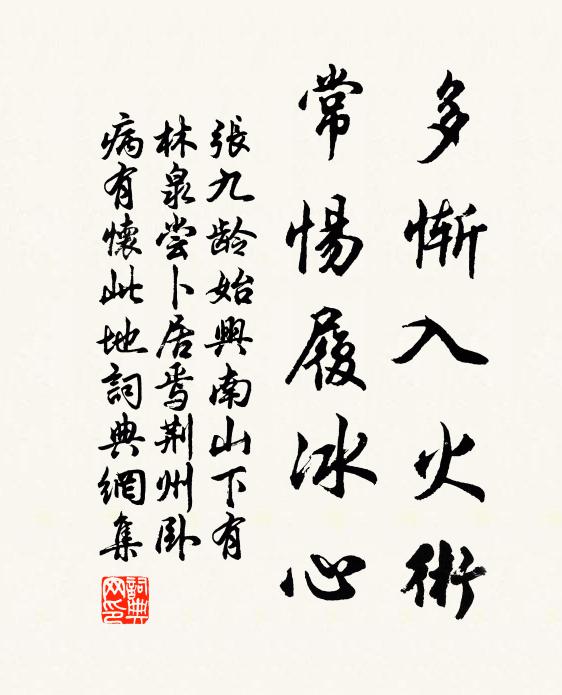 多慚入火術
常惕履冰心
張九龄始興南山下有
林泉尝卜居焉荆州卧
病有懷此地詞典網集
詞典网印